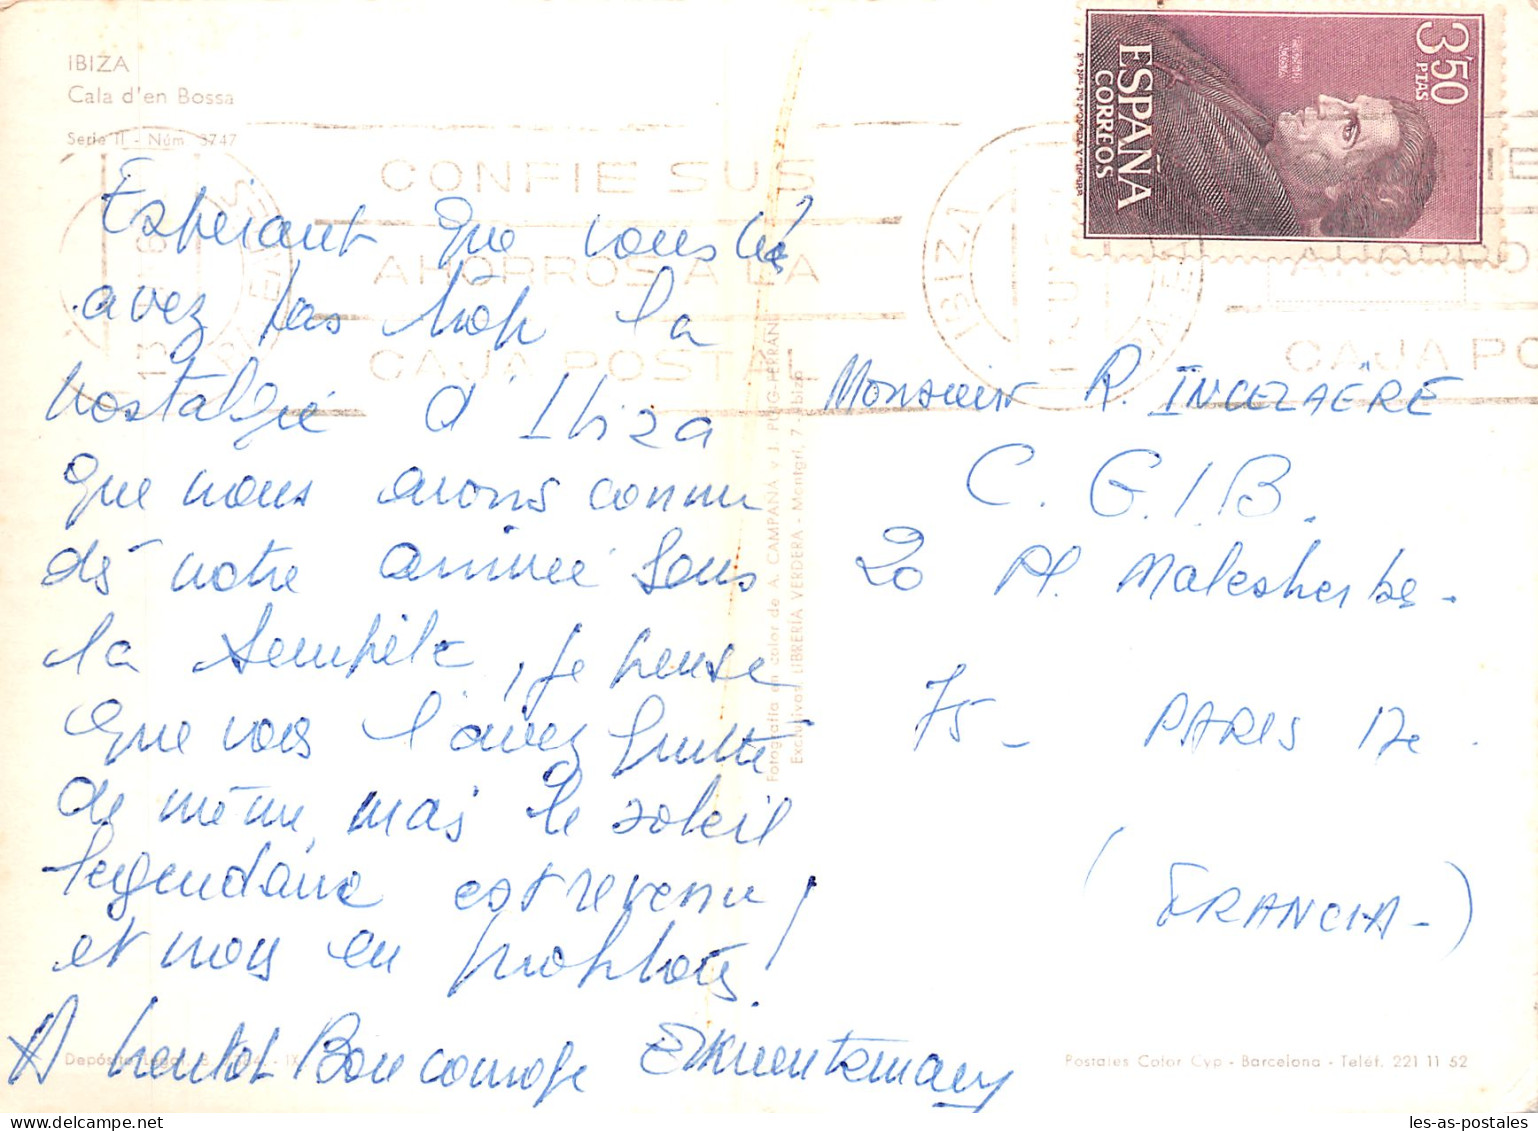 IBIZA
Cala d'en Bossa
Serie II - Núm. 3747
CONFIE SUS
AHORROS A LA
CAJA POSTAL
IBIZA
3'50 PTAS
ESPAÑA
CORREOS
Espérant que vous n'
avez pas trop la
nostalgie d'Ibiza
que nous avons connu
dès notre arrivée sous
la tempête, je pense
que vous l'avez quitté
de même, mais le soleil
légendaire est revenu
et nous en profitons!
A bientôt Bon courage
Fotografía en color de A. CAMPAÑÁ y J. PUIG-FERRÁN
Exclusivas LIBRERÍA VERDERA - Montgrí, 7 - Ibiza
Monsieur R. INCEZAËRE
C.G.I.B.
20 Pl. Malesherbes -
75 - PARIS 17e.
(FRANCIA-)
Depósito Legal B. - IX
Postales Color Cyp - Barcelona - Teléf. 221 11 52
les-as-postales